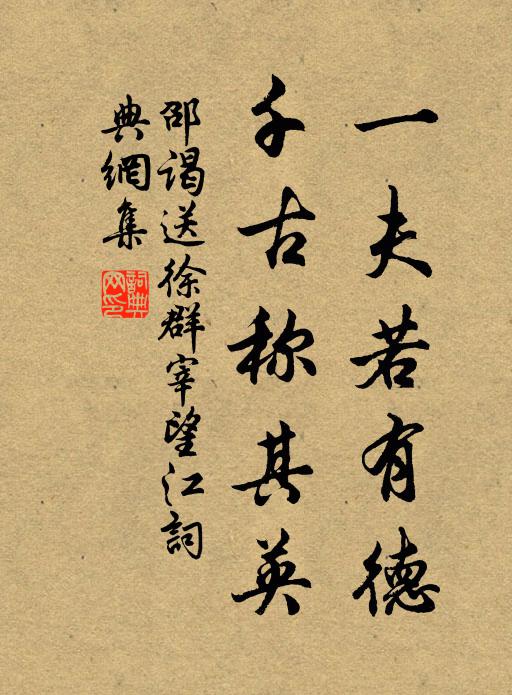 一夫若有德
千古称其英
邵謁送徐群宰望江詞
典網集
詞典
网印